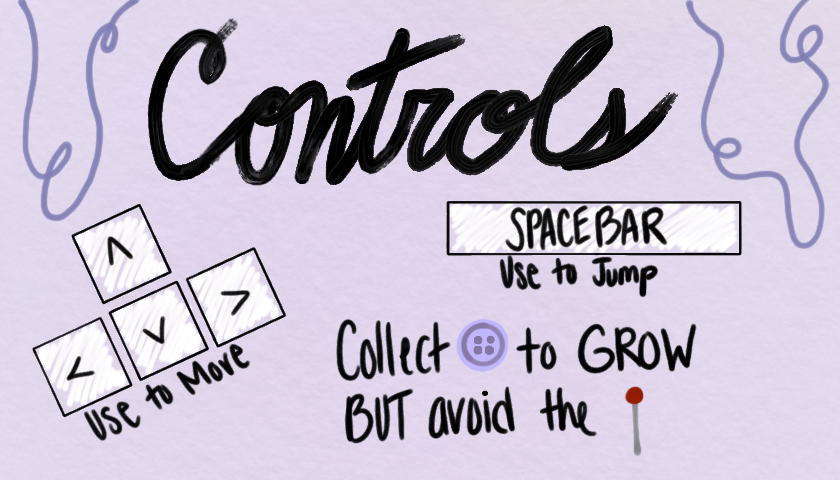 Controls
^
< v >
Use to Move
SPACEBAR
Use to Jump
Collect to GROW
BUT avoid the